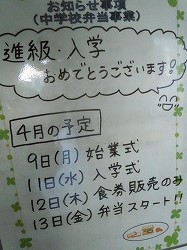 お知らせ事項
(中学校弁当事業)
進級・入学
おめでとうございます!
4月の予定
9日(月) 始業式
11日(水) 入学式
12日(木) 食券販売のみ
13日(金) 弁当スタート!!